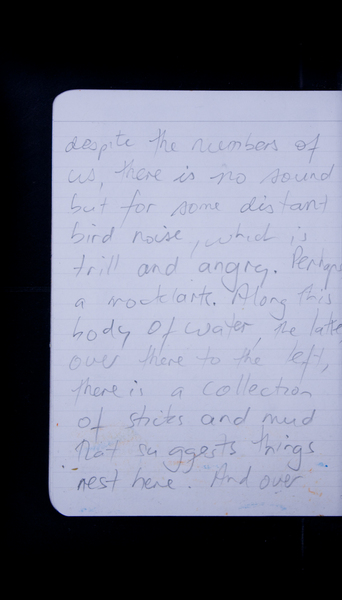 despite the numbers of
us, there is no sound
but for some distant
bird noise, which is
trill and angry. Perhaps
a rocklark. Along this
body of water, the latter
over there to the left,
there is a collection
of sticks and mud
that suggests things
nest here. And over